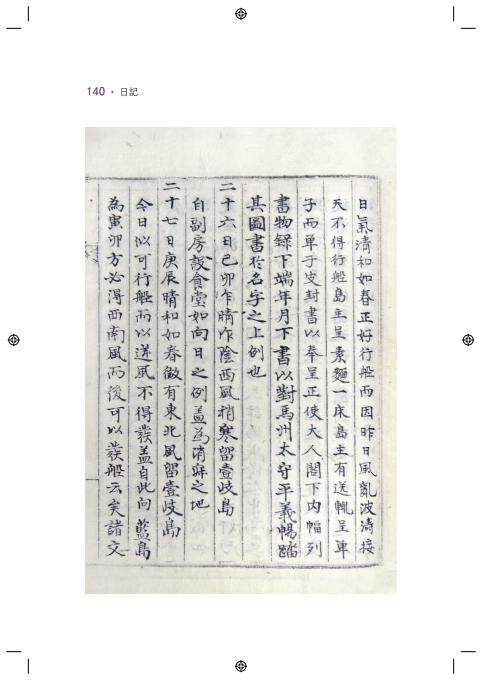 140 · 日記
日氣淸和如春正好行船而因昨日風亂波濤接
天不得行船島主呈素麵一床島主有送輒呈單
子而單子皮封書以奉呈正使大人閤下内幅列
書物錄下端年月下書以對馬州太守平義暢踏
其圖書於名字之上例也
二十六日己卯乍晴乍陰西風稍寒留壹岐島
自副房設食堂如向日之例盖為消寂之地
二十七日庚辰晴和如春微有東北風留壹岐島
今日似可行船而以送風不得發盖自此向藍島
為寅卯方必得西南風而後可以發船云矣諸文